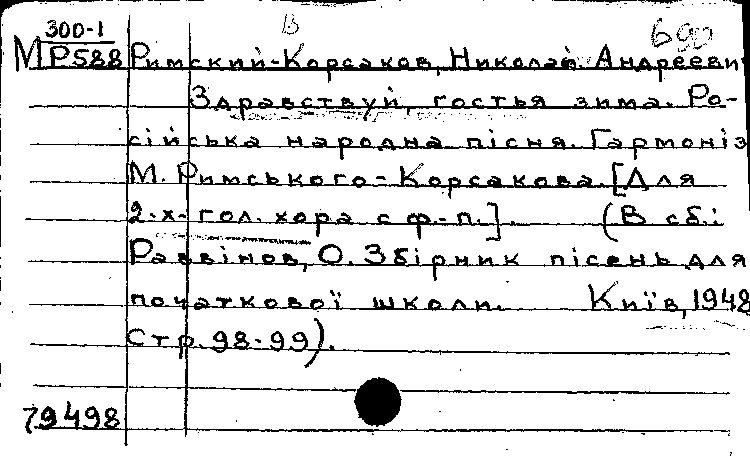 300-1 В 690
МР588 Римский-Корсаков, Николай Андреевич
Здравствуй, гостья зима. Ро-
сійська народна пісня. Гармоніз
М. Римського-Корсакова. [Для
2-х-гол. хора с ф-п.]. (В сб.:
Раввінов, О. Збірник пісень для
початкової школи. Київ, 1948
Стр. 98-99).
79498